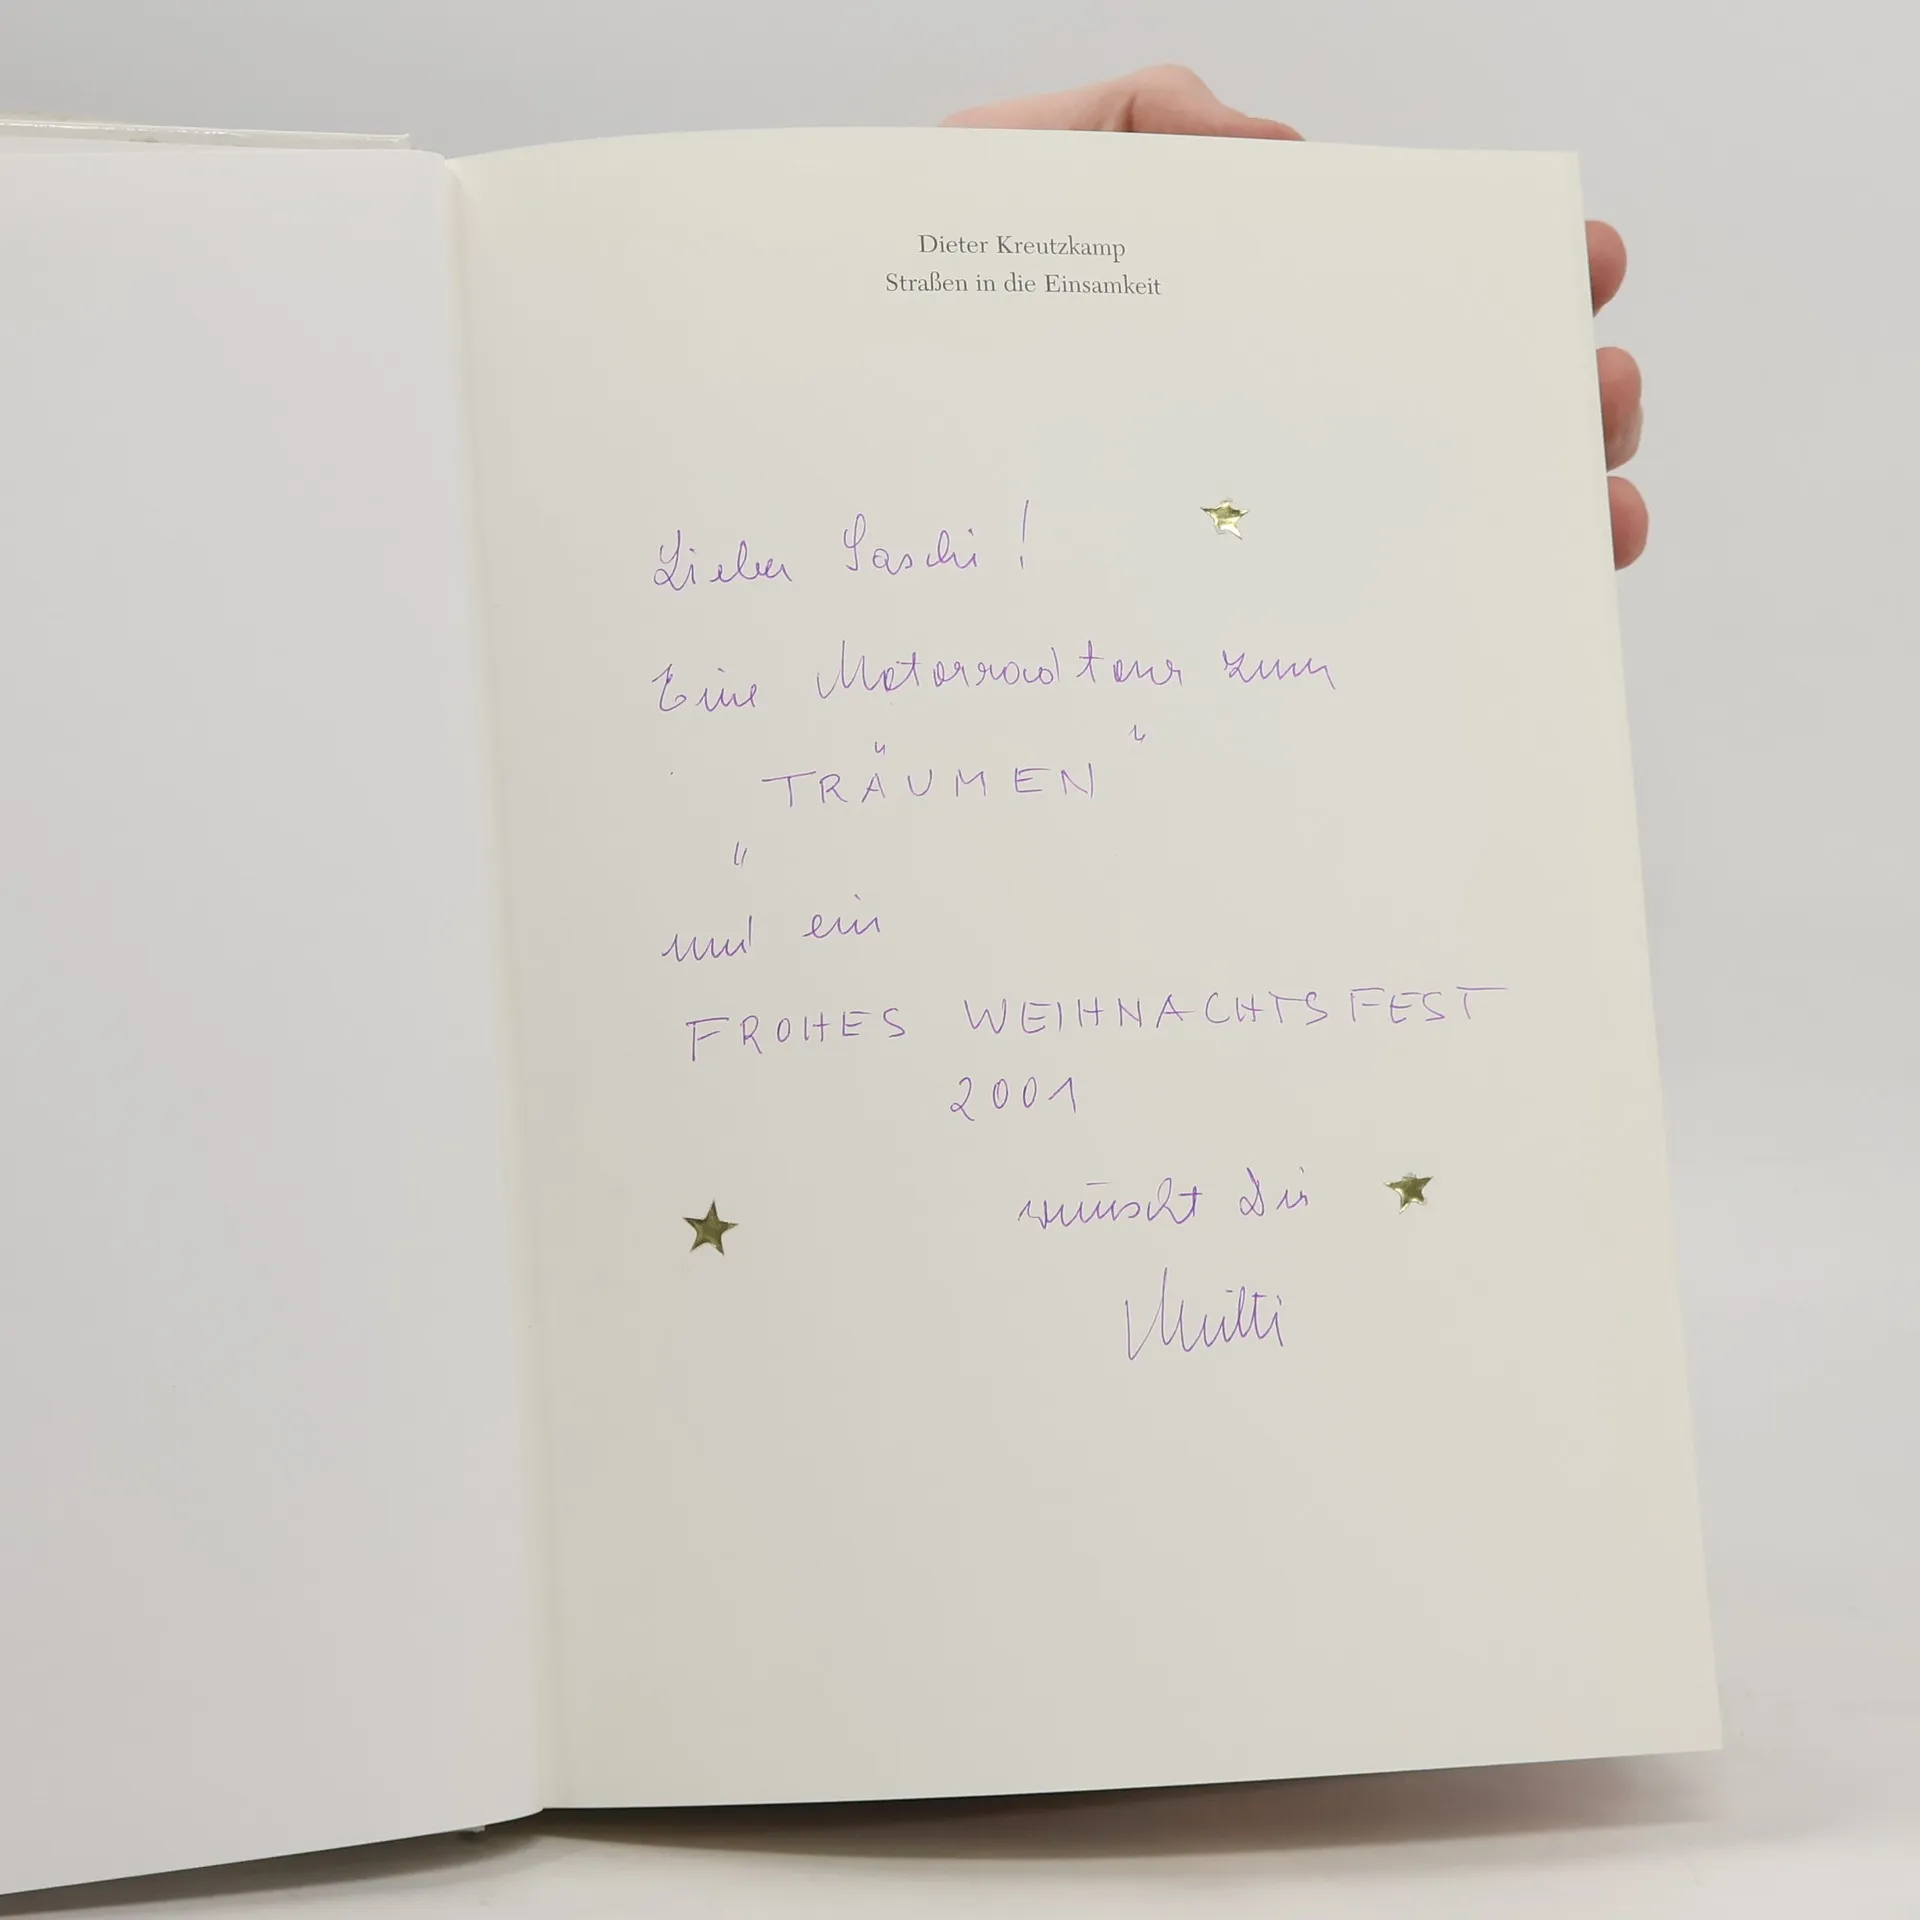 Dieter Kreutzkamp
Straßen in die Einsamkeit
Lieber Saschi!
Eine Motorradtour zum
"
TRÄUMEN
"
und ein
FROHES WEIHNACHTSFEST
2001
wünscht Dir
Mutti